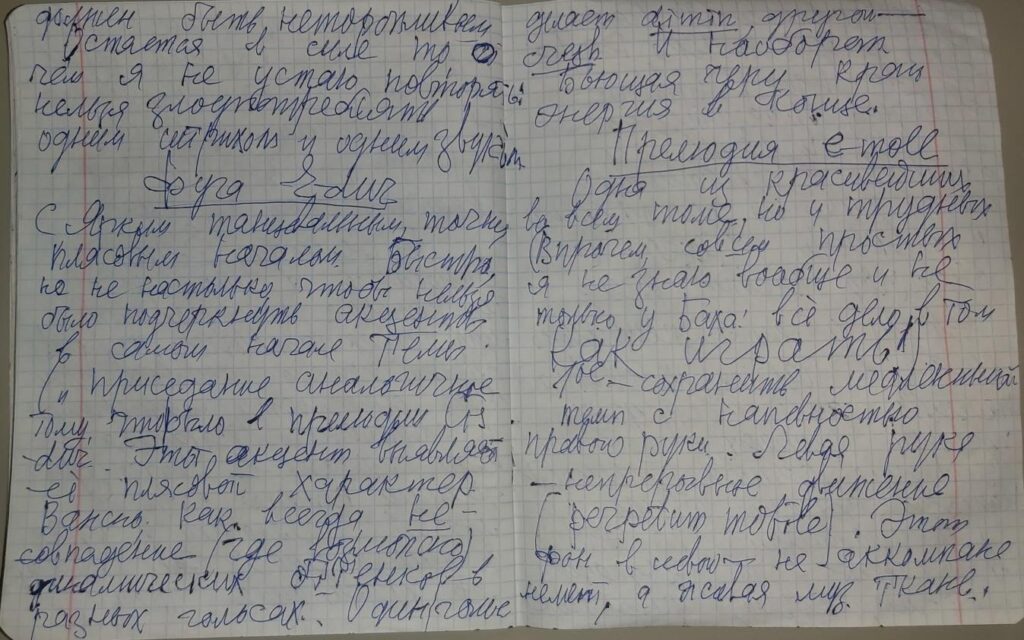 должен быть неторопливым
Остаётся в силе то о
чём я не устаю повторять:
нельзя злоупотреблять
одним штрихом и одним звуком
Фуга
С ярким танцевальным, точну
плясовым началом. Быстро,
но не настолько, чтобы нельзя
было подчеркнуть акцентов
в самом начале темы.
(„ приседание аналогичное
тому, что было в прелюдии
Этот акцент выявляет
её плясовой характер
Важно. Как всегда не-
совпадение (где возможно)
динамических оттенков в
разных голосах. Один голос
делает dimin, другой —
И наоборот
Бьющая через край
энергия в конце.
Прелюдия
Одна из красивейших
во всём томе, но и трудных
(Впрочем, совсем простых
я не знаю вообще и не
только у Баха: всё дело в том
как играть!)
сохранить медленный
темп с напевностью
правой руки. Левая рука
– непрерывное движение
Этот
фон в левой не аккомпане
немент, а живая муз. ткань.